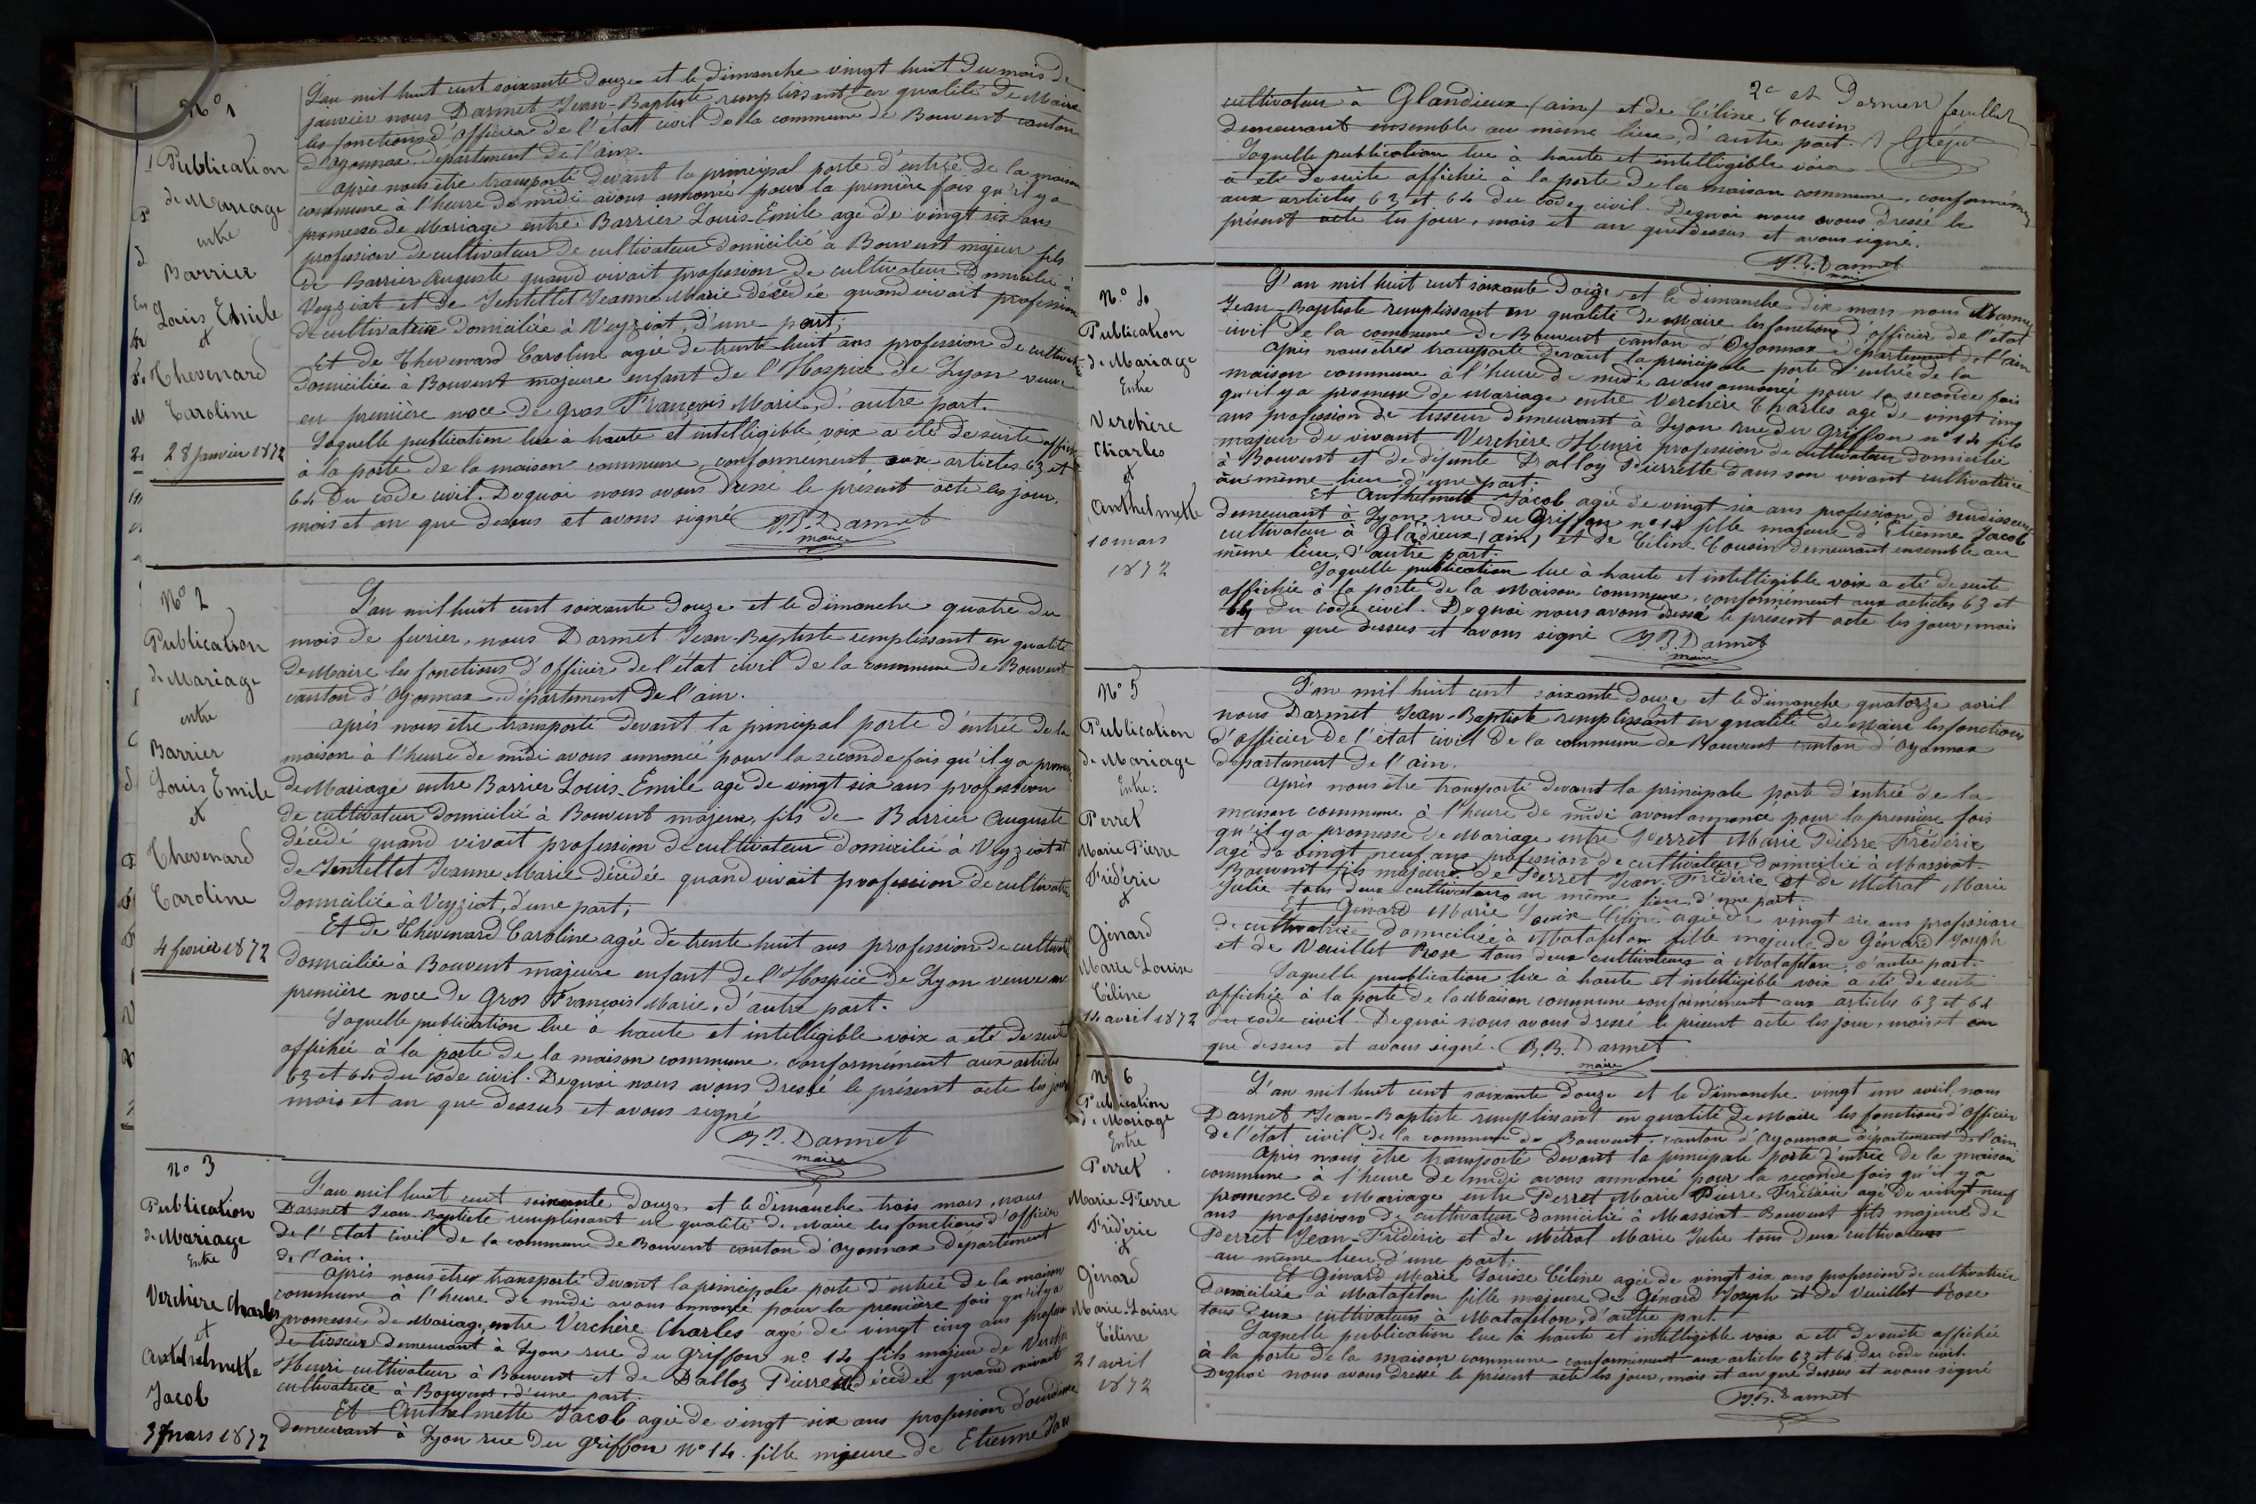 N° 1
Publication
de Mariage
entre
Barrier
Louis Emile
et
Thevenard
Caroline
28 janvier 1872
L'an mil huit cent soixante douze et le dimanche vingt huit du mois de
janvier nous Darmet Jean-Baptiste remplissant en qualité de Maire
les fonctions d'officier de l'état civil de la commune de Bouvent canton
d'Oyonnax département de l'ain.
après nous être transporté devant la principal porte d'entrée de la maison
commune à l'heure de midi avons annoncé pour la première fois qu'il y a
promesse de Mariage entre Barrier Louis-Emile agé de vingt six ans
profession de cultivateur de cultivateur domicilié à Bouvent majeur fils
de Barrier Auguste quand vivait profession de cultivateur domicilié à
Veyziat et de Jentellet Jeanne Marie décédée quand vivait profession
de cultivatrice domiciliée à Veyziat, d'une part,
Et de Thevenard Caroline agée de trente huit ans profession de cultivat
domiciliée à Bouvent majeure enfant de l'Hospice de Lyon veuve
en première noce de Gros François Marie, d'autre part.
Laquelle publication lue à haute et intelligible voix a été de suite affichée
à la porte de la maison commune, conformément aux articles 63 et
64 du code civil. De quoi nous avons dressé le présent acte les jour,
mois et an que dessus et avons signé J.B. Darmet
maire
N° 2
Publication
de Mariage
entre
Barrier
Louis Emile
et
Thevenard
Caroline
4 février 1872
L'an mil huit cent soixante douze et le dimanche quatre du
mois de fevrier, nous Darmet Jean-Baptiste remplissant en qualité
de Maire les fonctions d'officier de l'état civil de la commune de Bouvent
canton d'Oyonnax département de l'ain.
après nous être transporté devant la principal porte d'entrée de la
maison à l'heure de midi avons annoncé pour la seconde fois qu'il y a promesse
de Mariage entre Barrier Louis-Emile agé de vingt six ans profession
de cultivateur domicilié à Bouvent majeur, fils de Barrier Auguste
décédé quand vivait profession de cultivateur domicilié à Veyziat et
de Jentellet Jeanne Marie décédée quand vivait profession de cultivatrice
domiciliée à Veyziat, d'une part,
Et de Thevenard Caroline agée de trente huit ans profession de cultivat
domiciliée à Bouvent majeure enfant de l'Hospice de Lyon veuve en
première noce de Gros François Marie, d'autre part.
Laquelle publication lue à haute et intelligible voix a été de suite
affichée à la porte de la maison commune, conformément aux articles
63 et 64 du code civil. De quoi nous avons dressé le présent acte les jour
mois et an que dessus et avons signé
J.B. Darmet
maire
N° 3
Publication
de Mariage
Entre
Verchère Charles
et
Anthelmette
Jacob
3 mars 1872
L'an mil huit cent soixante douze et le dimanche trois mars, nous
Darmet Jean-Baptiste remplissant en qualité de Maire les fonctions d'officier
de l'Etat civil de la commune de Bouvent canton d'Oyonnax département
de l'ain.
après nous être transporté devant la principale porte d'entrée de la maison
commune à l'heure de midi avons annoncé pour la première fois qu'il y a
promesse de Mariage entre Verchère Charles agé de vingt cinq ans profession
de tisseur demeurant à Lyon rue du Griffon n° 14 fils majeur de Verchère
Henri cultivateur à Bouvent et de Dalloz Pierrette décédée quand vivait
cultivatrice à Bouvent, d'une part.
Et Anthelmette Jacob agée de vingt six ans profession d'ourdisseuse
demeurant à Lyon rue du Griffon N° 14. fille majeure de Etienne Jacob
2e et Dernier feuillet
cultivateur à Glandieux (ain) et de Céline Cousin
demeurant ensemble au même lieu, d'autre part.
Laquelle publication lue à haute et intelligible voix
a été de suite affichée à la porte de la maison commune, conformément
aux articles 63 et 64 du code civil. De quoi nous avons dressé le
présent acte les jour, mois et an que dessus et avons signé.
J.B. Darmet
maire
N° 4
Publication
de Mariage
Entre
Verchère
Charles
et
Anthelmette
10 mars
1872
L'an mil huit cent soixante douze et le dimanche dix mars nous Darmet
Jean-Baptiste remplissant en qualité de Maire les fonctions d'officier de l'état
civil de la commune de Bouvent canton d'Oyonnax département de l'ain
après nous être transporté devant la principale porte d'entrée de la
maison commune à l'heure de midi avons annoncé pour la seconde fois
qu'il y a promesse de Mariage entre Verchère Charles agé de vingt cinq
ans profession de tisseur demeurant à Lyon rue du Griffon n° 14 fils
majeur de vivant Verchère Henri profession de cultivateur domicilié
à Bouvent et de défunte Dalloz Pierrette dans son vivant cultivatrice
au même lieu, d'une part.
Et Anthelmette Jacob agée de vingt six ans profession d'ourdisseuse
demeurant à Lyon rue du Griffon n° 14 fille majeure d'Etienne Jacob
cultivateur à Gladieux (ain) et de Céline Cousin demeurant ensemble au
même lieu, d'autre part.
Laquelle publication lue à haute et intelligible voix a été de suite
affichée à la porte de la Maison commune, conformément aux articles 63 et
64 du code civil. De quoi nous avons dressé le présent acte les jour, mois
et an que dessus et avons signé J.B. Darmet
maire
N° 5
Publication
de Mariage
Entre:
Perret
Marie Pierre
Frédéric
&
Génard
Marie Louise
Céline
14 avril 1872
L'an mil huit cent soixante douze et le dimanche quatorze avril
nous Darmet Jean-Baptiste remplissant en qualité de Maire les fonctions
d'officier de l'état civil de la commune de Bouvent canton d'Oyonnax
département de l'ain.
après nous être transporté devant la principale porte d'entrée de la
maison commune à l'heure de midi avons annoncé pour la première fois
qu'il y a promesse de Mariage entre Perret Marie Pierre Frédéric
agé de vingt neuf ans profession de cultivateur domicilié à Massiat-
Bouvent fils majeur de Perret Jean-Frédéric et de Métral Marie
Julie tous deux cultivateurs au même lieu, d'une part.
Et Génard Marie Louise Céline agée de vingt six ans profession
de cultivatrice domiciliée à Matafelon fille majeure de Génard Joseph
et de Veuillet Rose tous deux cultivateurs à Matafelon, d'autre part.
Laquelle publication lue à haute et intelligible voix a été de suite
affichée à la porte de la Maison commune conformément aux articles 63 et 64
du code civil. De quoi nous avons dressé le présent acte les jour, mois et an
que dessus et avons signé. J.B. Darmet
maire
N° 6
Publication
de Mariage
Entre
Perret
Marie-Pierre
Frédéric
&
Génard
Marie-Louise
Céline
21 avril
1872
L'an mil huit cent soixante douze et le dimanche vingt un avril, nous
Darmet Jean-Baptiste remplissant en qualité de Maire les fonctions d'officier
de l'état civil de la commune de Bouvent, canton d'Oyonnax département de l'ain
après nous être transporté devant la principale porte d'entrée de la maison
commune à l'heure de midi avons annoncé pour la seconde fois qu'il y a
promesse de Mariage entre Perret Marie Pierre Frédéric agé de vingt neuf
ans profession de cultivateur domicilié à Massiat-Bouvent fils majeur de
Perret Jean-Frédéric et de Métral Marie Julie tous deux cultivateurs
au même lieu, d'une part.
Et Génard Marie Louise Céline agée de vingt six ans profession de cultivatrice
domiciliée à Matafelon fille majeure de Génard Joseph et de Veuillet Rose
tous deux cultivateurs à Matafelon, d'autre part.
Laquelle publication lue à haute et intelligible voix a été de suite affichée
à la porte de la maison commune conformément aux articles 63 et 64 du code civil.
De quoi nous avons dressé le présent acte les jour, mois et an que dessus et avons signé
J.B. Darmet